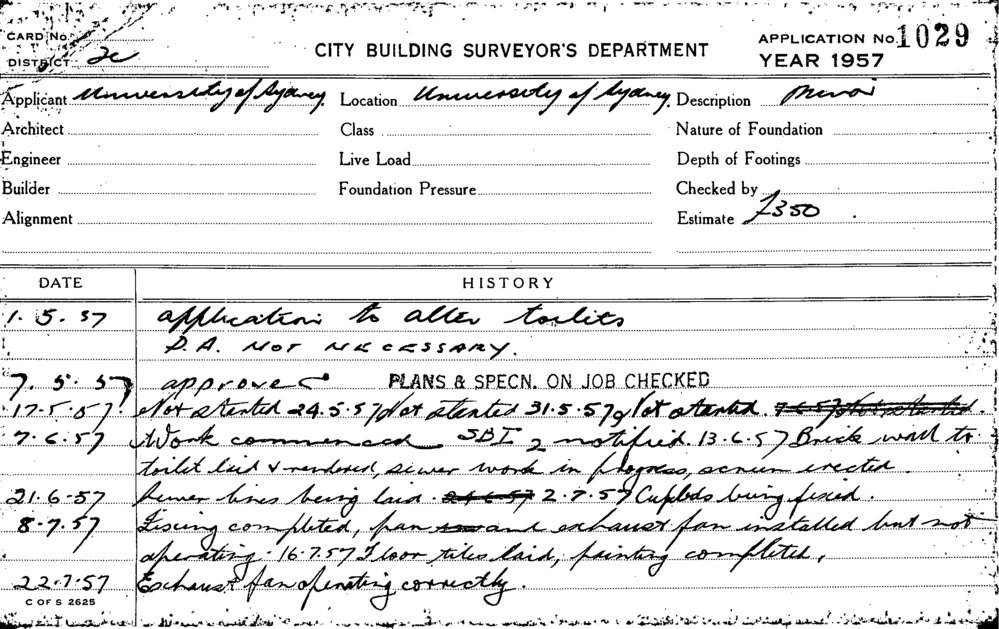 CARD No.
DISTRICT 2c
CITY BUILDING SURVEYOR'S DEPARTMENT
APPLICATION No. 1029
YEAR 1957
Applicant University of Sydney Location University of Sydney Description Minor
Architect Class Nature of Foundation
Engineer Live Load Depth of Footings
Builder Foundation Pressure Checked by
Alignment Estimate £350
DATE HISTORY
1. 5. 57 application to alter toilets
D.A. NOT NECESSARY.
7. 5. 57 approved PLANS & SPECN. ON JOB CHECKED
17.5.57 Not started 24.5.57 Not started 31.5.57 Not started. 7.6.57 Not started.
7.6.57 Work commenced SBI 2 notified. 13.6.57 Brick wall to
toilet laid & rendered, sewer work in progress, screen erected.
21.6.57 Sewer lines being laid. 2.7.57 Cupbds being fixed.
8.7.57 Fixing completed, pan and exhaust fan installed but not
operating. 16.7.57 Floor tiles laid, painting completed.
22.7.57 Exhaust fan operating correctly.
C OF S 2625